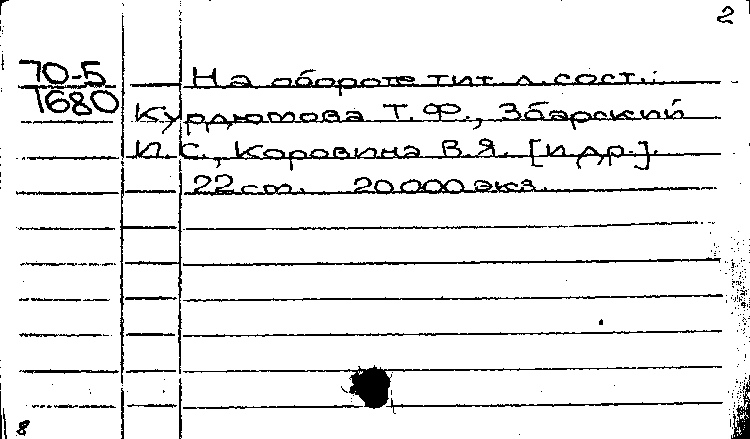 2
70-5
1680
На обороте тит. л. сост.:
Курдюмова Т.Ф., Збарский
И.С., Коровина В.Я. [и др.].
22 см. 20000 экз.
8